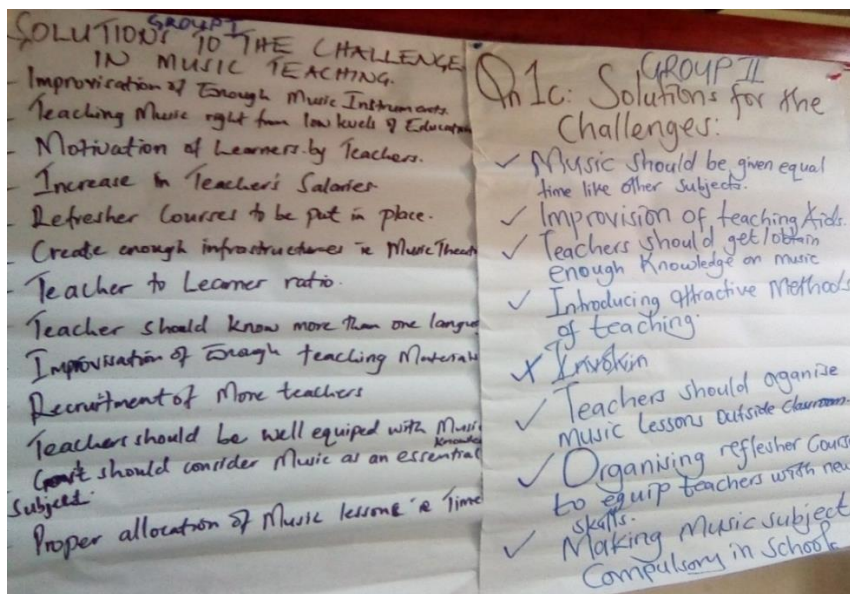 GROUP I
SOLUTIONS TO THE CHALLENGE
IN MUSIC TEACHING.
- Improvisation of Enough Music Instruments.
- Teaching Music right from low levels of Education
- Motivation of Learners by Teachers.
- Increase in Teacher's Salaries
- Refresher Courses to be put in place.
- Create enough infrastructures ie Music Theatr
- Teacher to Learner ratio.
- Teacher should know more than one langua
- Improvisation of Enough teaching Material
- Recruitment of More teachers
Teachers should be well equiped with Music
Knowled
should consider Music as an essential
Subject.
- Proper allocation of Music lessons ie Time
GROUP II
Qn 1c: Solutions for the
Challenges:
✓ Music should be given equal
time like other subjects.
✓ Improvision of teaching Aids.
✓ Teachers should get/obtain
enough Knowledge on music
✓ Introducing attractive Methods
of teaching.
✗ Invokin
✓ Teachers should organise
music lessons outside classroom.
✓ Organising reflesher Cours
to equip teachers with new
skills.
✓ Making Music subject
Compulsory in School